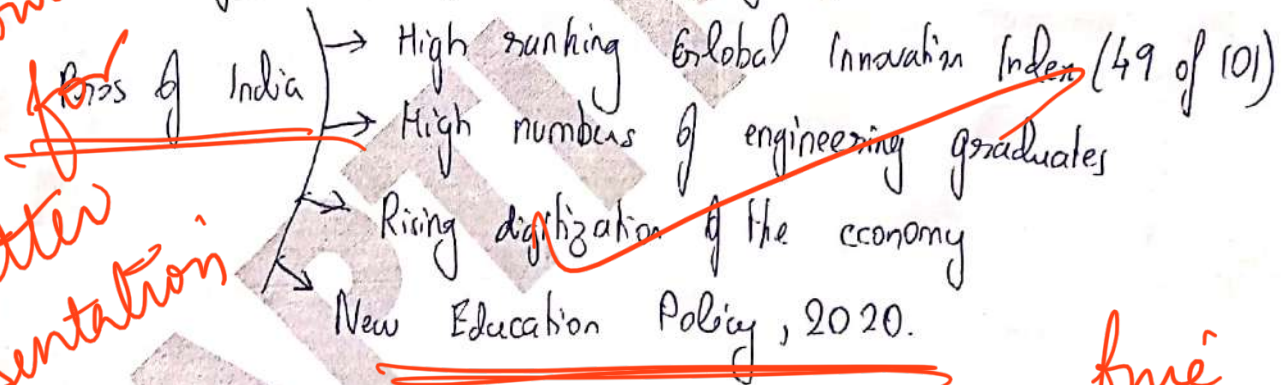 for
Pros of India → High ranking Global Innovation Index (49 of 101)
→ High numbers of engineering graduates
→ Rising digitization of the economy
→ New Education Policy, 2020.